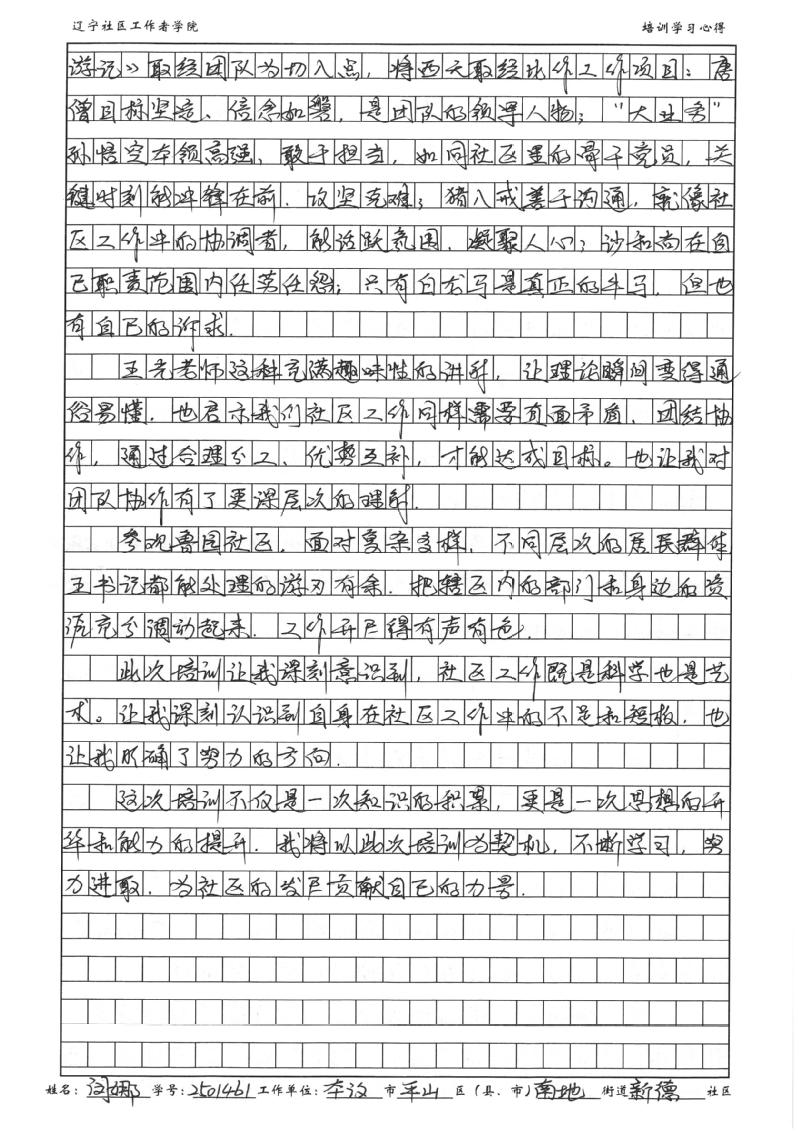 辽宁社区工作者学院 培训学习心得
游记》取经团队为切入点，将西天取经比作工作项目：唐
僧目标坚定、信念如磐，是团队的领导人物；“大业务”
孙悟空本领高强、敢于担当，如同社区里的骨干党员，关
键时刻能冲锋在前．攻坚克难；猪八戒善于沟通，就像社
区工作中的协调者，能活跃氛围．凝聚人心；沙和尚在自
己职责范围内任劳任怨；只有白龙马是真正的牛马．但也
有自己的诉求．
王老老师这种充满趣味性的讲解，让理论瞬间变得通
俗易懂．也启示我们社区工作同样需要直面矛盾．团结协
作，通过合理分工、优势互补，才能达成目标。也让我对
团队协作有了更深层次的理解．
参观鲁园社区．面对复杂多样．不同层次的居民群体
王书记都能处理的游刃有余．把辖区内的部门和身边的资
源充分调动起来．工作开展得有声有色．
此次培训让我深刻意识到，社区工作既是科学也是艺
术。让我深刻认识到自身在社区工作中的不足和短板．也
让我明确了努力的方向．
这次培训不仅是一次知识的积累，更是一次思想的升
华和能力的提升．我将以此次培训为契机，不断学习，努
力进取．为社区的发展贡献自己的力量．
姓名：闫娜 学号：2501461 工作单位：本溪 市 平山 区（县、市）南地 街道 新德 社区